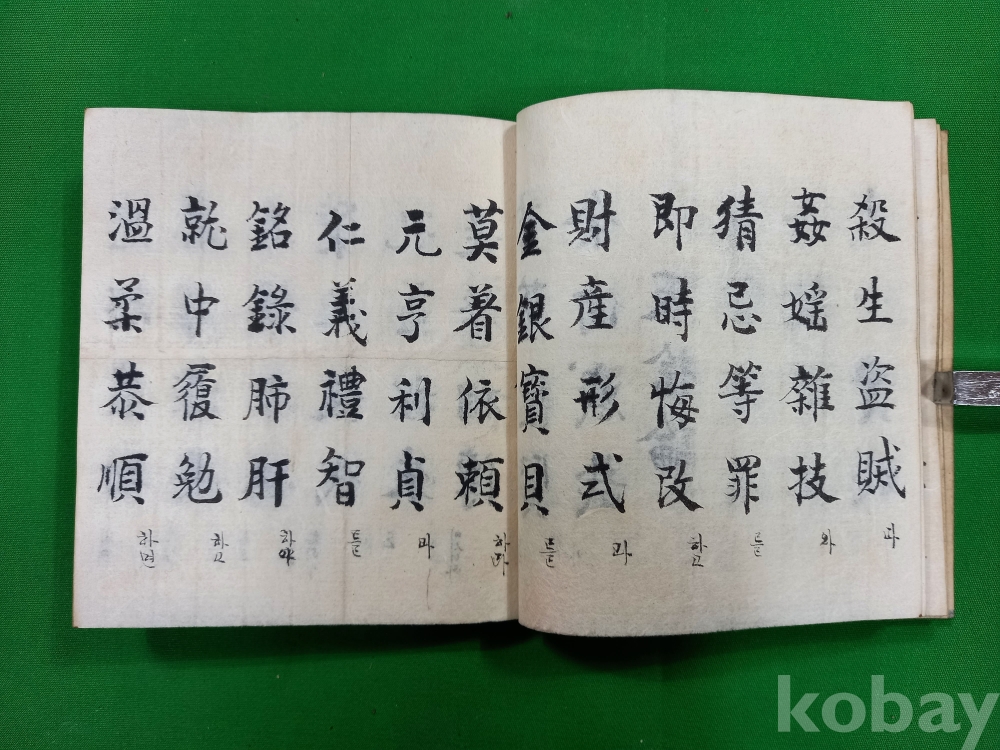 殺生盗賊
姦婬雜技 와
猜忌等罪 를
即時悔改 하고
財産形式 과
金銀寶貝 를
莫着依頼
元亨利貞 과
仁義禮智 를
銘錄肺肝 하야
就中復勉 하고
溫柔恭順 하면
kobay